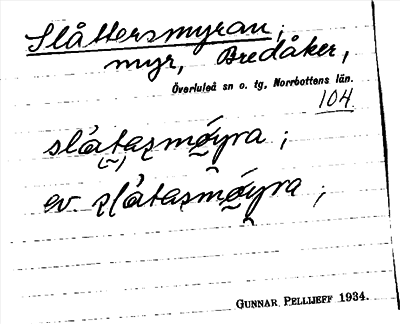 Slåttersmyran;
myr, Bredåker,
Överluleå sn o. tg, Norrbottens län.
104
slåtasmöyra;
ev. slåtasmöyra;
GUNNAR PELLIJEFF 1934.